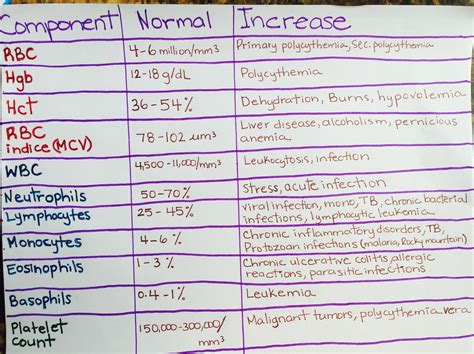 Component Normal Increase
RBC 4-6 million/mm³ Primary polycythemia, Sec. polycythemia
Hgb 12-18 g/dL Polycythemia
Hct 36-54% Dehydration, Burns, hypovolemia
RBC indice (MCV) 78-102 um³ Liver disease, alcoholism, pernicious
anemia
WBC 4,500-11,000/mm³ Leukocytosis, infection
Neutrophils 50-70% Stress, acute infection
Lymphocytes 25-45% viral infection, mono, TB, chronic bacterial
infections, lymphocytic leukemia
Monocytes 4-6% Chronic inflammatory disorders, TB,
Protozoan infections (malaria, Rocky mountain)
Eosinophils 1-3% Chronic ulcerative colitis, allergic
reactions, parasitic infections
Basophils 0.4-1% Leukemia
Platelet count 150,000-300,000/mm³ Malignant tumors, polycythemia vera